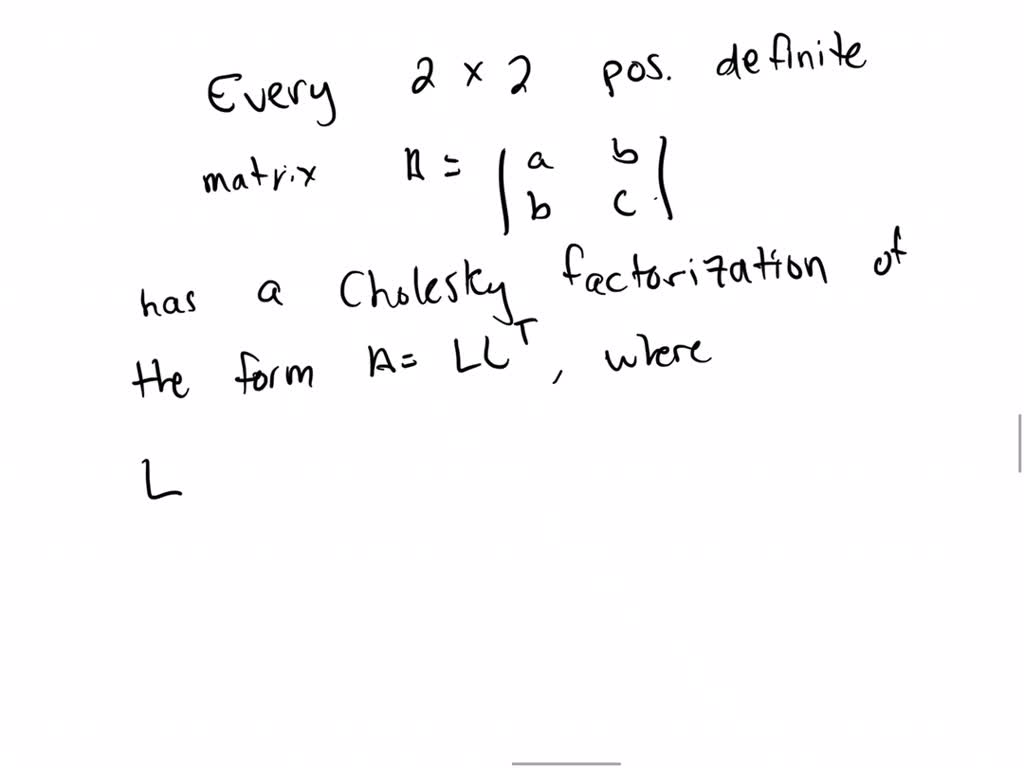 Every 2 × 2 pos. definite
matrix A = | a b |
| b c |
has a Cholesky factorization of
the form A = LLᵀ, where
L